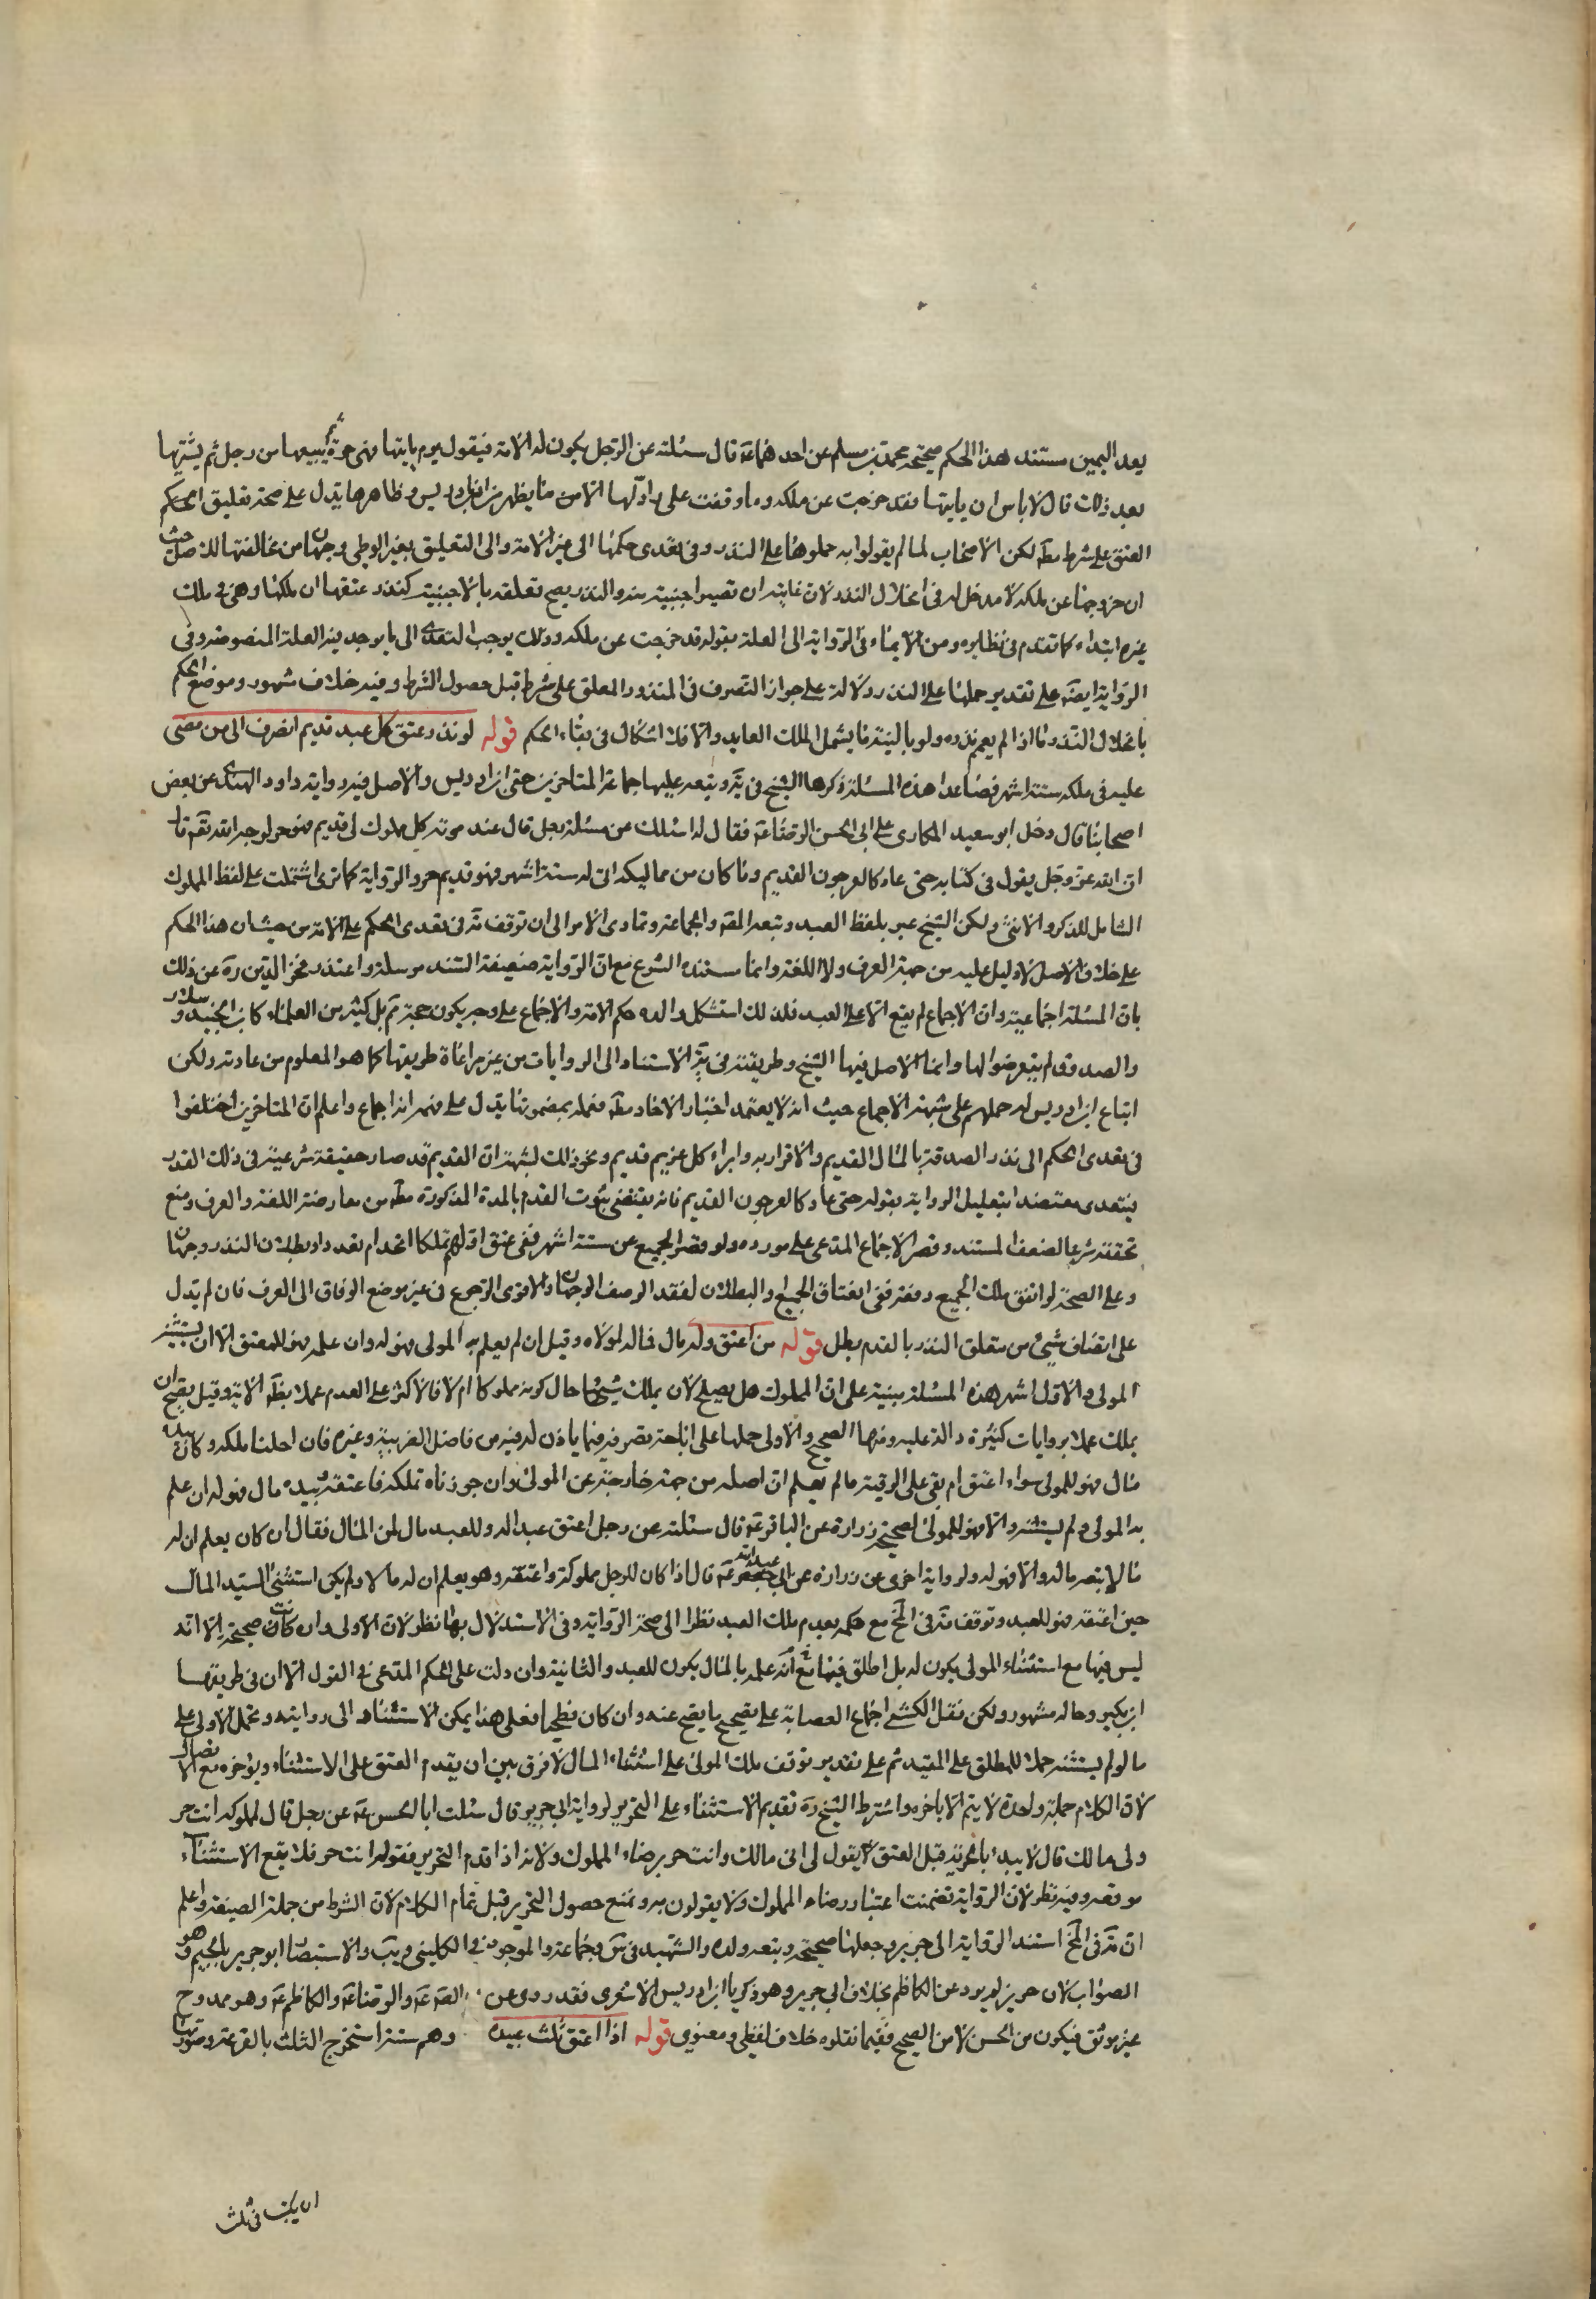 بعد اليمين مستند هذا الحكم صحيحة محمد بن مسلم عن احدهما ع قال سئلته عن الرجل يكون له الامة فيقول يوم ياتيها فهى حرة ثم يبيعها من رجل ثم يشتريها
بعد ذلك قال لا باس ان ياتيها فقد خرجت عن ملكه وما وقفت على راد لها الا من ما يظهر من ابن ادريس وظاهرها يدل على صحة تعليق الحكم
العتق على شرط مطه لكن الاصحاب لما لم يقولوا به حملوها على النذر وفى تعدى حكمها الى غير الامة والى التعليق بغير الوطى وجهان من مخالفتها للاصل حيث
ان خروجها عن ملكه لا مدخل له فى انحلال النذر لان غايته ان تصير اجنبية منه والنذر يصح تعلقه بالاجنبية كنذر عتقها ان ملكها وهى فى ملك
غيره ابتداء كما تقدم فى نظايره ومن الايماء فى الرواية الى العلة بقوله قد خرجت عن ملكه وذلك يوجب التعدى الى ما يوجد فيه العلة المنصوصة وفى
الرواية ايضه على تقدير حملها على النذر دلالة على جواز التصرف فى المنذور المعلق على شرط قبل حصول الشرط وفيه خلاف مشهور وموضع الحكم
بانحلال النذر ما اذا لم يعم نذره ولو بالنية بما يشمل الملك العايد والا فلا اشكال فى بقاء الحكم قوله لو نذر عتق كل عبد قديم انصرف الى من مضى
عليه فى ملكه ستة اشهر فصاعدا هذه المسئلة ذكرها الشيخ فى يه وتبعه عليها جماعة المتاخرين حتى ابن ادريس والاصل فيه رواية داود النهدى عن بعض
اصحابنا قال دخل ابو سعيد المكارى على ابى الحسن الرضا ع فقال له اسئلك عن مسئلة رجل قال عند موته كل مملوك لى قديم فهو حر لوجه الله نعم قال
ان الله عز وجل يقول فى كتابه حتى عاد كالعرجون القديم وما كان من مماليكه اتى له ستة اشهر فهو قديم حر والرواية كما ترى اشتملت على لفظ المملوك
الشامل للذكر والانثى ولكن الشيخ عبر بلفظ العبد وتبعه المصه والجماعة وتمادى الامر الى ان توقف مه فى تعدى الحكم على الامة من حيث ان هذا الحكم
على خلاف الاصل لا دليل عليه من جهة العرف ولا اللغة وانما مستنده الشرع مع ان الرواية ضعيفة السند مرسلة واعتذر فخر الدين ره عن ذلك
بان المسئلة اجماعية وان الاجماع لم يقع الا على العبد فلذلك استشكل والده حكم الامة والاجماع على وجه يكون حجة ثم بل كثير من العلماء كابن الجنيد وسلار
والصدوق لم يتعرضوا لها وانما الاصل فيها الشيخ وطريقته فى يه الاستناد الى الروايات من غير مراعاة طريقها كما هو المعلوم من عادته ولكن
اتباع ابن ادريس له حملهم على شبهة الاجماع حيث انه لا يعتمد اخبار الاحاد مطه فعمله بمضمونها يدل على فهمه انه اجماع واعلم ان المتاخرين اختلفوا
فى تعدى الحكم الى نذر الصدقة بالمال القديم والاقرار به وابراء كل غريم قديم ونحو ذلك لشبهة ان القديم قد صار حقيقة شرعية فى ذلك القدر
فيتعدى معتضدا بتعليل الرواية بقوله حتى عاد كالعرجون القديم فانه يقتضى ثبوت القدم بالمدة المذكورة مطه من معارضة اللغة والعرف ومنع
تحققه شرعا لضعف المستند وقصر الاجماع المدعى على مورده ولو قصر الجميع عن ستة اشهر ففى عتق اولهم تملكا اتحد ام تعدد او بطلان النذر وجهان
وعلى الصحة لو اتفق ملك الجميع دفعة ففى انعتاق الجميع او البطلان لفقد الوصف الوجهان والاقوى الرجوع فى غير موضع الوفاق الى العرف فان لم يدل
على اتصاف شىء من متعلق النذر بالقدم بطل قوله من اعتق وله مال فماله لمولاه وقيل ان لم يعلم به المولى فهو له وان علمه فهو للمعتق الا ان يستثنيه
المولى والاول اشهر هذه المسئلة مبنية على ان المملوك هل يصلح لان يملك شيئا حال كونه مملوكا ام لا فالاكثر على العدم عملا بظه الاية وقيل يصح ان
يملك عملا بروايات كثيرة دالة عليه وفيها الصحيح والاولى حملها على اباحة تصرفه فيما ياذن له فيه من فاضل الضريبة وغيره فان احلنا ملكه وكان بيده
مال فهو للمولى سواء اعتق ام بقى على الرقية ما لم يعلم ان اصله من جهة خارجة عن المولى وان جوزناه تملكه فاعتقه وبيده مال فهو له ان علم
به المولى ولم يستثنه والا فهو للمولى لصحيحة زرارة عن الباقر ع قال سئلته عن رجل اعتق عبدا له وللعبد مال لمن المال فقال ان كان يعلم ان له
مالا تبعه ماله والا فهو له ولرواية اخرى عن زرارة عن ابى عبد الله ع قال اذا كان للرجل مملوكة واعتقه وهو يعلم ان له مالا ولم يكن استثنى السيد المال
حين اعتقه فهو للعبد وتوقف مه فى لخ مع حكمه بعدم ملك العبد نظرا الى صحة الرواية وفى الاستدلال بها نظر لان الاولى وان كانت صحيحة الا انه
ليس فيها مع استثناء المولى يكون له بل اطلق فيها مع انه علمه بالمال يكون للعبد والثانية وان دلت على الحكم المدعى فى القول الا ان فى طريقها
ابن بكير وحاله مشهور ولكن نقل الكشى اجماع العصابة على تصحيح ما يصح عنه وان كان فطحيا فعلى هذا يمكن الاستناد الى روايته وتحمل الاولى على
ما لو لم يستثنه حملا للمطلق على المقيد ثم على تقدير توقف ملك المولى على استثناء المال لا فرق بين ان يقدم العتق على الاستثناء ويؤخره مع الاتصال
لان الكلام جملة واحدة لا يتم الا باخره واشترط الشيخ ره تقديم الاستثناء على التحرير لرواية ابى جرير قال سئلت ابا الحسن ع عن رجل قال لمملوكه انت حر
ولى مالك قال لا يبدا بالحرية قبل العتق يقول لى مالك وانت حر برضاء المملوك ولانه اذا قدم التحرير بقوله انت حر فلا يقع الاستثناء
موقعه وفيه نظر لان الرواية تضمنت اعتبار رضاء المملوك ولا يقولون به ونمنع حصول التحرير قبل تمام الكلام لان الشرط من جملة الصيغة واعلم
ان مه فى لخ استند الرواية الى حريز وجعلها صحيحة وتبعه ولده والشهيد فى س وجماعة والموجود فى الكلينى ويب والاستبصار ابو جرير بالجيم وهو
الصواب لان حريز لم يرو عن الكاظم بخلاف ابى جرير وهو زكريا ابن ادريس الاشعرى فقد روى عن الصه ع والرضا ع والكاظم ع وهو ممدوح
غير موثق فيكون من الحسن لا من الصحيح ففيما نقلوه خلاف لفظى ومعنوى قوله اذا اعتق ثلث عبيده وهم ستة استخرج الثلث بالقرعة وصورتها
ان يكتب فى ثلث